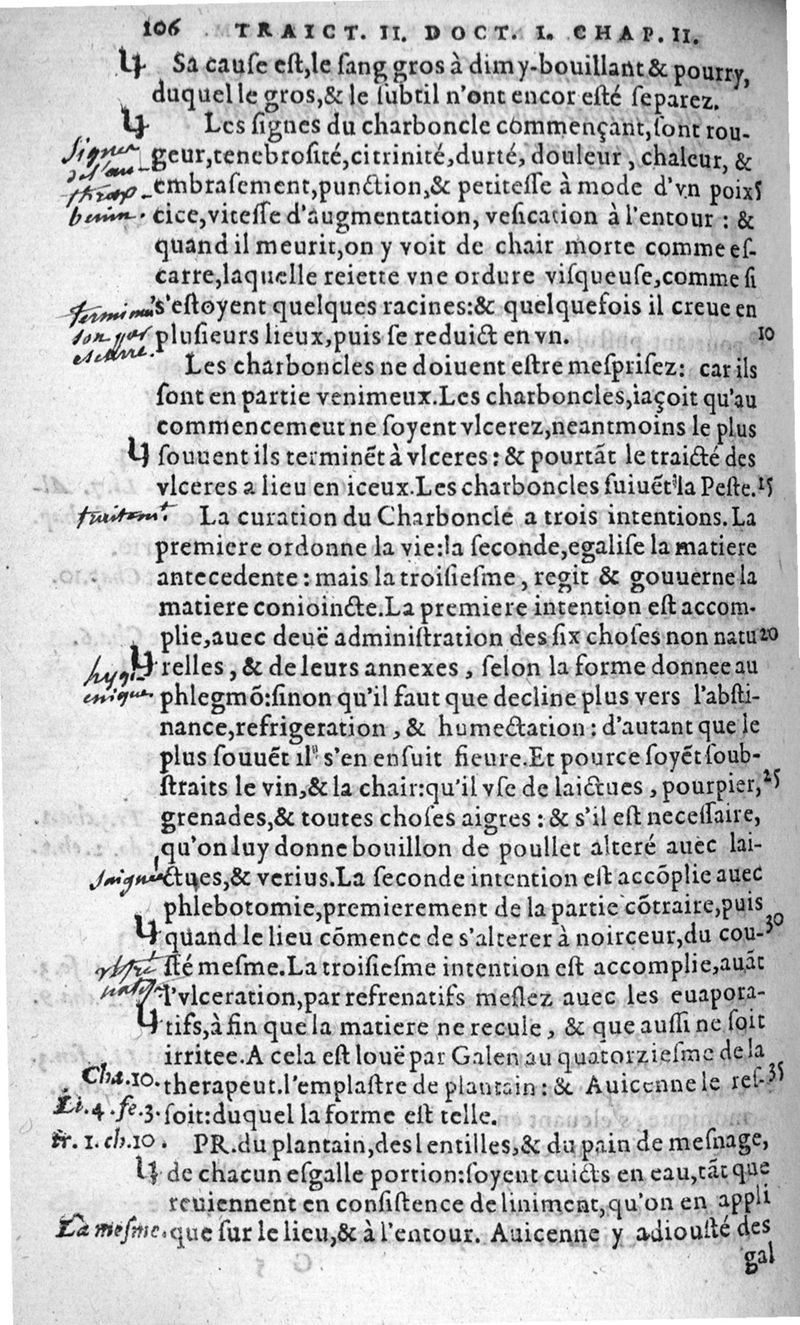 106 TRAICT. II. DOCT. I. CHAP. II.
Sa cauſe eſt,le ſang gros à dimy-bouillant & pourry,
duquel le gros,& le ſubtil n'ont encor eſté ſeparez.
Les ſignes du charboncle commençant,ſont rou-
geur,tenebroſité,citrinité,durté, douleur, chaleur, &
embraſement,punction,& petiteſſe à mode d'vn poix 5
cice,viteſſe d'augmentation, veſication à l'entour : &
quand il meurit,on y voit de chair morte comme eſ-
carre,laquelle reiette vne ordure viſqueuſe,comme ſi
s'eſtoyent quelques racines:& quelquefois il creue en
pluſieurs lieux,puis ſe reduict en vn. 10
Les charboncles ne doiuent eſtre meſpriſez: car ils
ſont en partie venimeux.Les charboncles,iaçoit qu'au
commencemeut ne ſoyent vlcerez,neantmoins le plus
ſouuent ils terminēt à vlceres : & pourtāt le traicté des
vlceres a lieu en iceux.Les charboncles ſuiuēt la Peſte. 15
La curation du Charboncle a trois intentions.La
premiere ordonne la vie:la ſeconde,egaliſe la matiere
antecedente : mais la troiſieſme, regit & gouuerne la
matiere conioincte.La premiere intention eſt accom-
plie,auec deuë adminiſtration des ſix choſes non natu 20
relles, & de leurs annexes, ſelon la forme donnee au
phlegmō:ſinon qu'il faut que decline plus vers l'abſti-
nance,refrigeration, & humectation : d'autant que le
plus ſouuēt il s'en enſuit fieure.Et pource ſoyēt ſoub-
ſtraits le vin,& la chair:qu'il vſe de laictues, pourpier, 25
grenades,& toutes choſes aigres : & s'il eſt neceſſaire,
qu'on luy donne bouillon de poullet alteré auec lai-
ctues,& verius.La ſeconde intention eſt accōplie auec
phlebotomie,premierement de la partie cōtraire,puis
quand le lieu cōmence de s'alterer à noirceur,du cou- 30
ſté meſme.La troiſieſme intention eſt accomplie,auāt
l'vlceration,par refrenatifs meſlez auec les euapora-
tifs,à fin que la matiere ne recule, & que auſſi ne ſoit
irritee.A cela eſt louë par Galen au quatorzieſme de la
Cha.10. therapeut.l'emplaſtre de plantain : & Auicenne le reſ- 35
Li.4.fe.3. ſoit:duquel la forme eſt telle.
tr. 1. ch.10. PR. du plantain,des lentilles,& du pain de meſnage,
de chacun eſgalle portion:ſoyent cuicts en eau,tāt que
reuiennent en conſiſtence de liniment,qu'on en appli
La meſme. que ſur le lieu,& à l'entour. Auicenne y adiouſté des
gal
Signes
benin.
ſon par
eſcarre.
traitemt.
hygi-
enique.
saignée